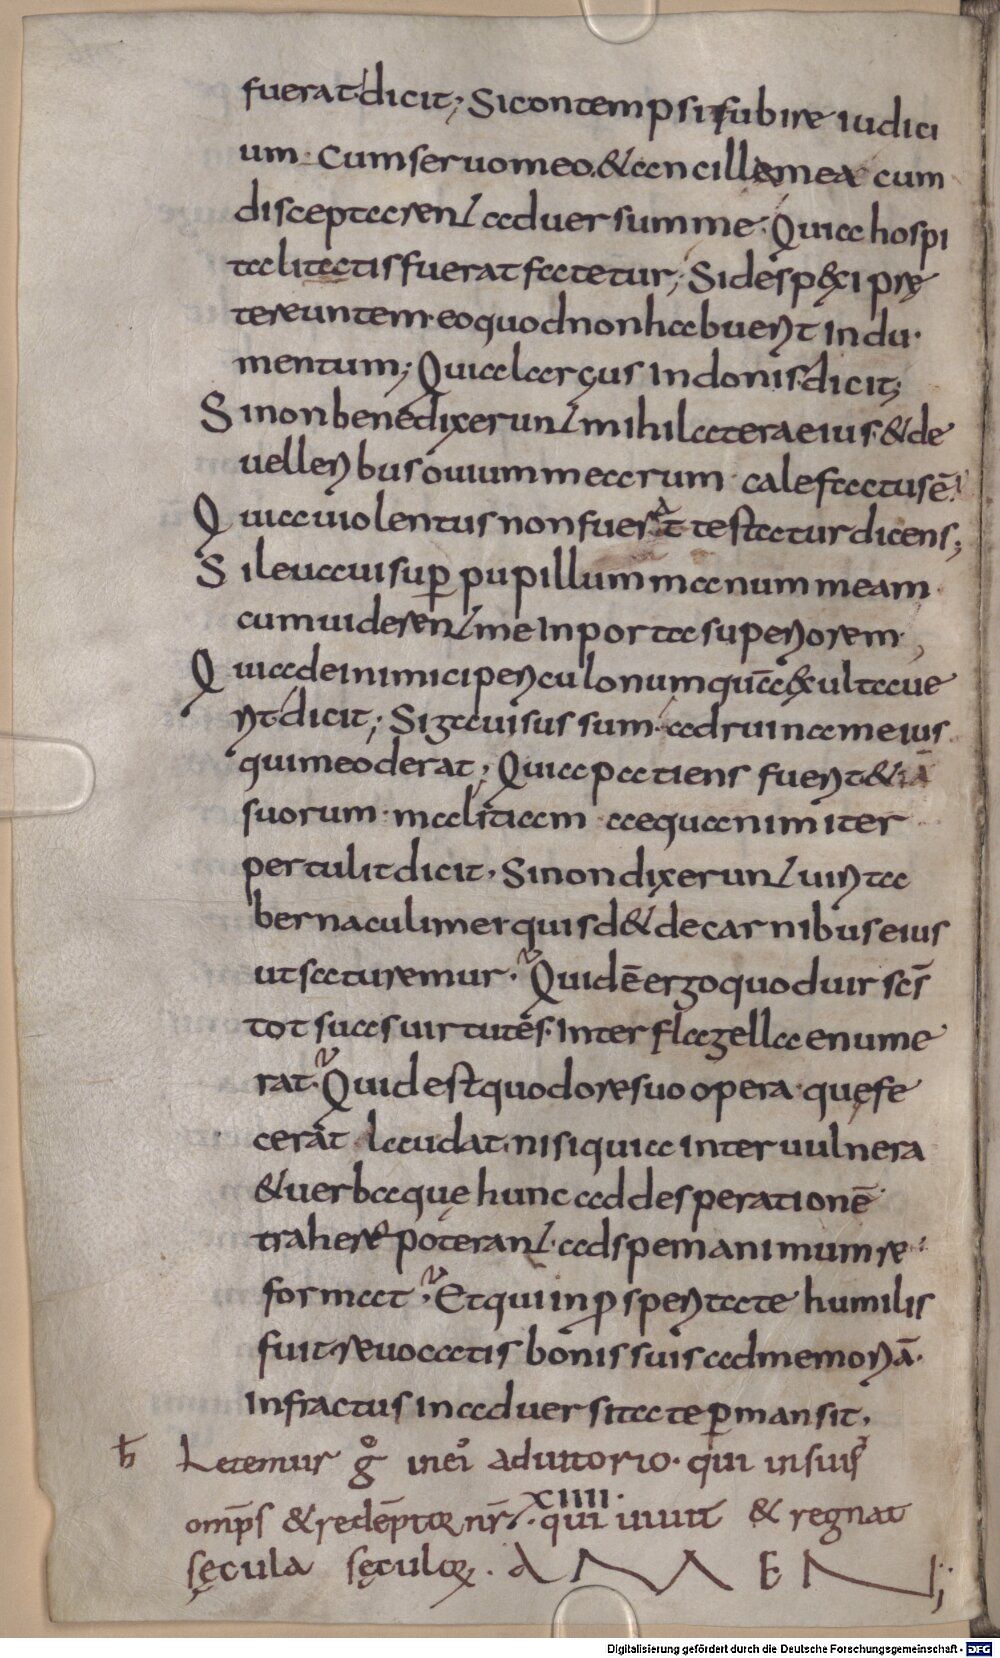 fuerat dicit; Si contempsi subire iudici
um. Cum seruo meo. & ancillę mea cum
disceptarent aduersum me. Quia hospi
talitatis fuerat fatetur; Si despexi prę
tereuntem. eo quod non habuerit indu.
mentum; Quia largus in donis. dicit;
Si non benedixerunt mihi latera eius. & de
uelleribus ouium mearum calefactus ē.
Quia uiolentus non fuerat testatur dicens;
Si leuaui sup pupillum manum meam
cum uiderent me in porta superiorem;
Quia de inimici periculo numquā exultaue
rit dicit; Si gauisus sum. ad ruinam eius
qui me oderat; Quia patiens fuerit & iā
suorum. malitiam aequanimiter
pertulit dicit. Si non dixerunt uiri ta
bernaculi mei. quis d& de carnibus eius
ut saturemur. Quid ē ergo quod uir scs̄
tot suas uirtutes. Inter flagella enume
rat. Quid est quod ore suo opera. quę fe
cerat laudat. nisi quia inter uulnera
& uerba quę hunc ad desperationē
trahere poterant. ad spem animum re
format. Et qui in psperitate humilis
fuit. reuocatis bonis suis ad memoriā.
Infractus in aduersitate pmansit.
Letemur g° in ei adiutorio. qui in suis
omps & redēptor nr̄. qui uiuit & regnat
XIIII.
sęcula sęculoꝝ. AMEN;
Digitalisierung gefördert durch die Deutsche Forschungsgemeinschaft - DFG